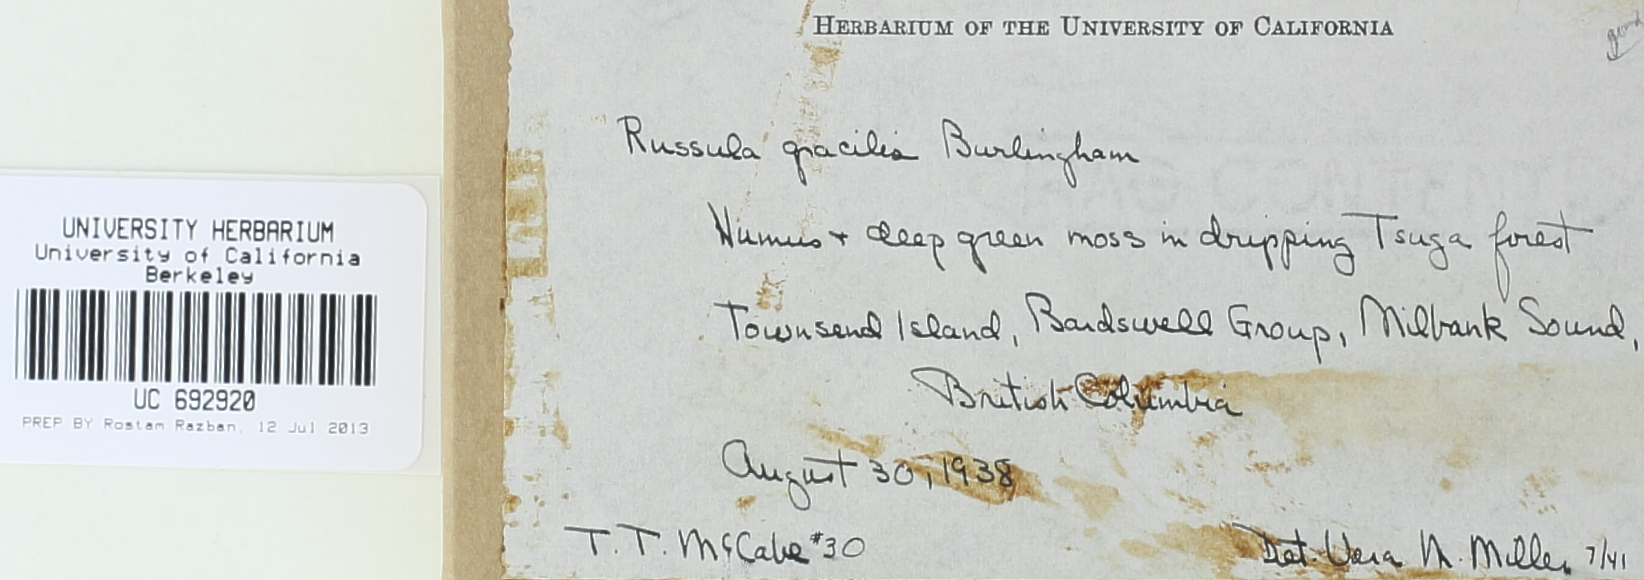 UNIVERSITY HERBARIUM
University of California
Berkeley
UC 692920
PREP BY Rostam Razban, 12 Jul 2013
HERBARIUM OF THE UNIVERSITY OF CALIFORNIA
Russula gracilis Burlingham
Humus + deep green moss in dripping Tsuga forest
Townsend Island, Bardswell Group, Milbank Sound,
British Columbia
August 30, 1938
T. T. McCabe #30
Det. Vera M. Miller 7/41